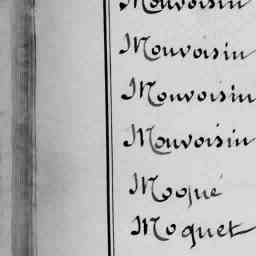 Mouvoisin
Mouvoisin
Mouvoisin
Mauvoisin
Moqué
Moquet